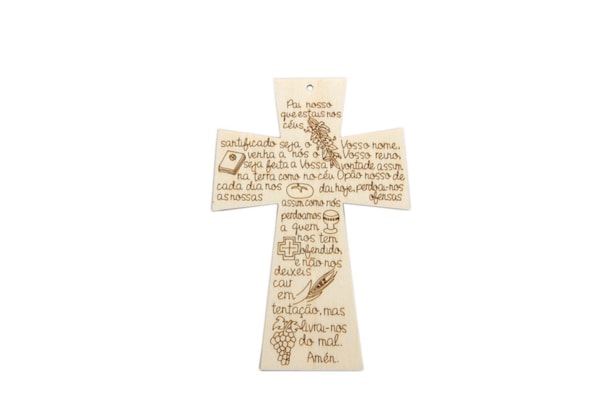 Pai nosso
que estais nos
céus,
santificado seja o Vosso nome,
venha a nós o Vosso reino,
seja feita a Vossa vontade assim
na terra como no céu O pão nosso de
cada dia nos dai hoje, perdoai-nos
as nossas ofensas
assim como nós
perdoamos
a quem
nos tem
ofendido,
e não nos
deixeis
cair
em
tentação, mas
livrai-nos
do mal.
Amén.